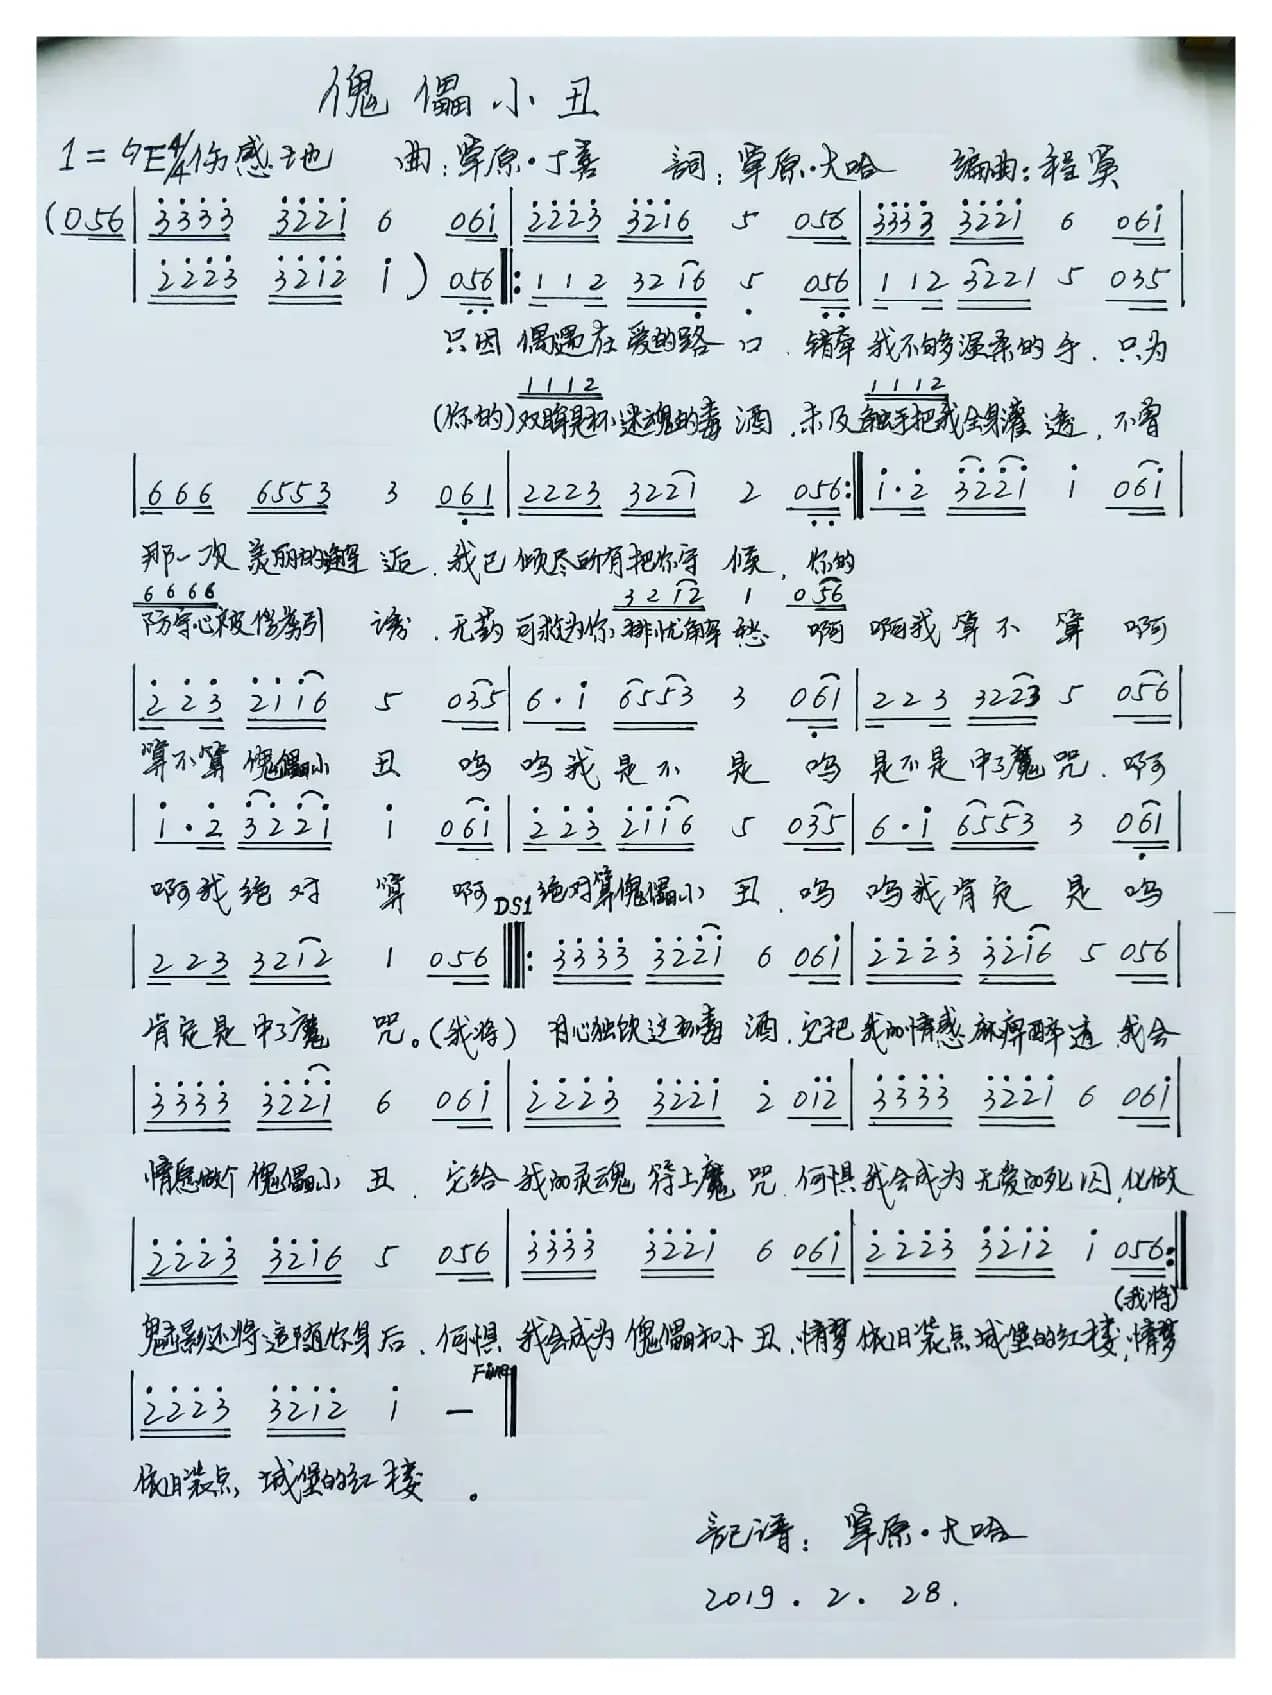 傀儡小丑
1=♭E 4/4 伤感地 曲:草原·丁喜 詞:草原·大哈 编曲:程
(056| 3333 3221 6 061| 2223 3216 5 056| 3333 3221 6 061|
| 2223 3212 1 ) 056 ‖: 112 3216 5 056| 112 3221 5 035|
只因 偶遇在爱的路 口.错牵 我不够温柔的手.只为
1112 1112
(你的)双眸是杯迷魂的毒 酒.未及触手把我全身灌 透.不曾
| 666 6553 3 061| 2223 3221 2 056 :‖ 1·2 3221 1 061|
那一次 美丽的邂 逅.我已 倾尽所有把你守 候.你的
6666 3212 1 056
防守心被你勾引 诱.无药 可救为你排忧解 愁 啊 啊我算不 算 啊
| 223 2116 5 035| 6·1 6553 3 061| 223 3223 5 056|
算不算 傀儡小 丑 呜 呜我是不 是 呜 是不是中了魔 咒.啊
| 1·2 3221 1 061| 223 2116 5 035| 6·1 6553 3 061|
啊我绝对 算 啊 绝对算傀儡小 丑.呜 呜我肯定 是 呜
DS1
| 223 3212 1 056 ‖: 3333 3221 6 061| 2223 3216 5 056|
肯定是中了魔 咒。(我将) 独饮这 毒 酒.它把 我的情感麻痹醉透 我会
| 3333 3221 6 061| 2223 3221 2 012| 3333 3221 6 061|
情愿做个 傀儡小 丑.它给 我的灵魂 符上魔 咒.何惧 我会成为 无爱的死 囚,化做
| 2223 3216 5 056| 3333 3221 6 061| 2223 3212 1 056 :‖
(我将)
魅影还将追随你身后.何惧 我会成为 傀儡和小 丑.情梦 依旧装点 城堡的红楼,情梦
Fine
| 2223 3212 1 — ‖
依旧装点 城堡的红楼 。
記谱:草原·大哈
2019.2.28.